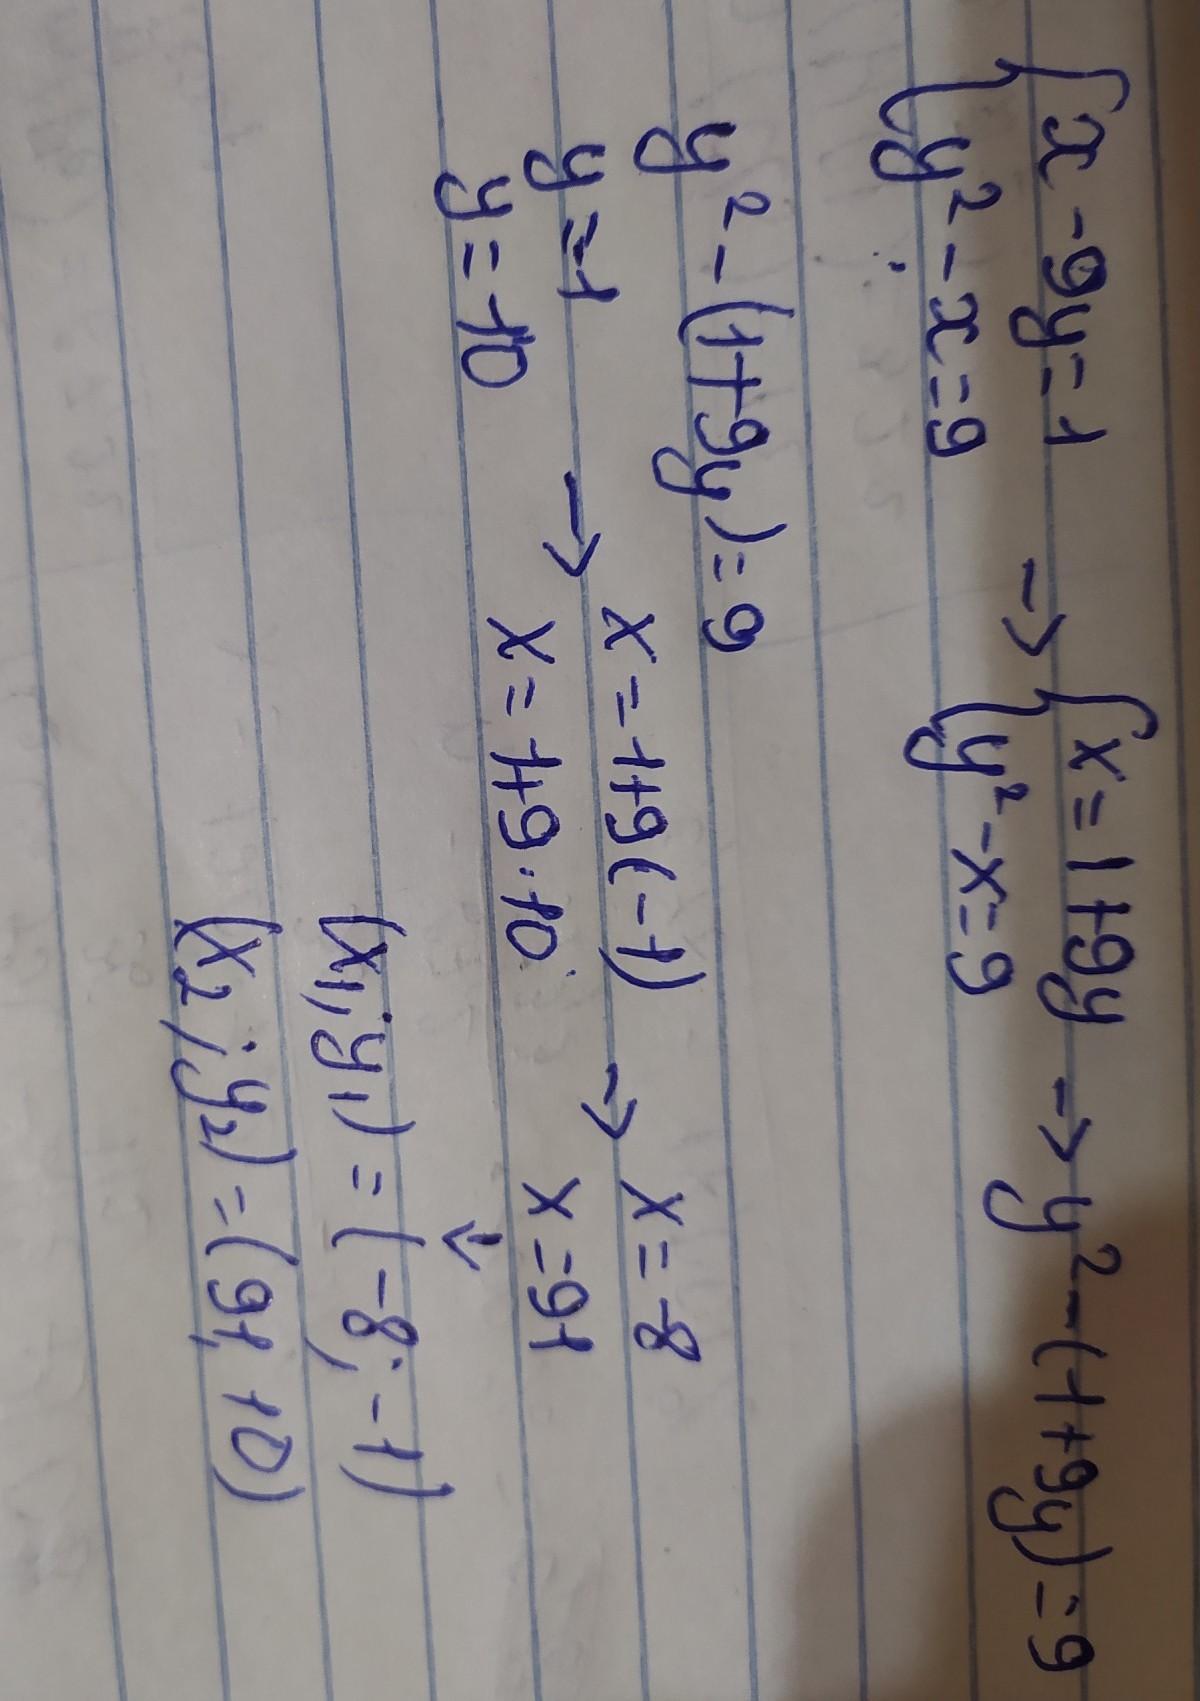 {x - 9y = 1 → {x = 1 + 9y → y² - (1 + 9y) = 9
{y² - x = 9 {y² - x = 9
y² - (1 + 9y) = 9
y = -1 → x = 1 + 9(-1) → x = -8
y = 10 x = 1 + 9 · 10 x = 91
↓
(x₁; y₁) = (-8; -1)
(x₂; y₂) = (91, 10)